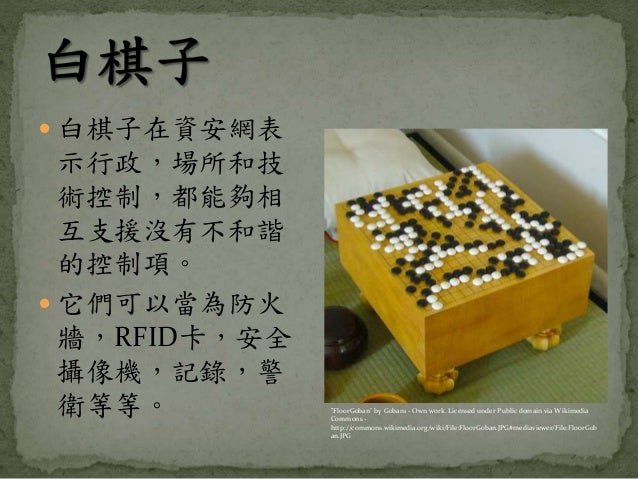 白棋子
白棋子在資安網表
示行政，場所和技
術控制，都能夠相
互支援沒有不和諧
的控制項。
它們可以當為防火
牆，RFID卡，安全
攝像機，記錄，警
衛等等。
"FloorGoban" by Goban1 - Own work. Licensed under Public domain via Wikimedia
Commons -
http://commons.wikimedia.org/wiki/File:FloorGoban.JPG#mediaviewer/File:FloorGob
an.JPG